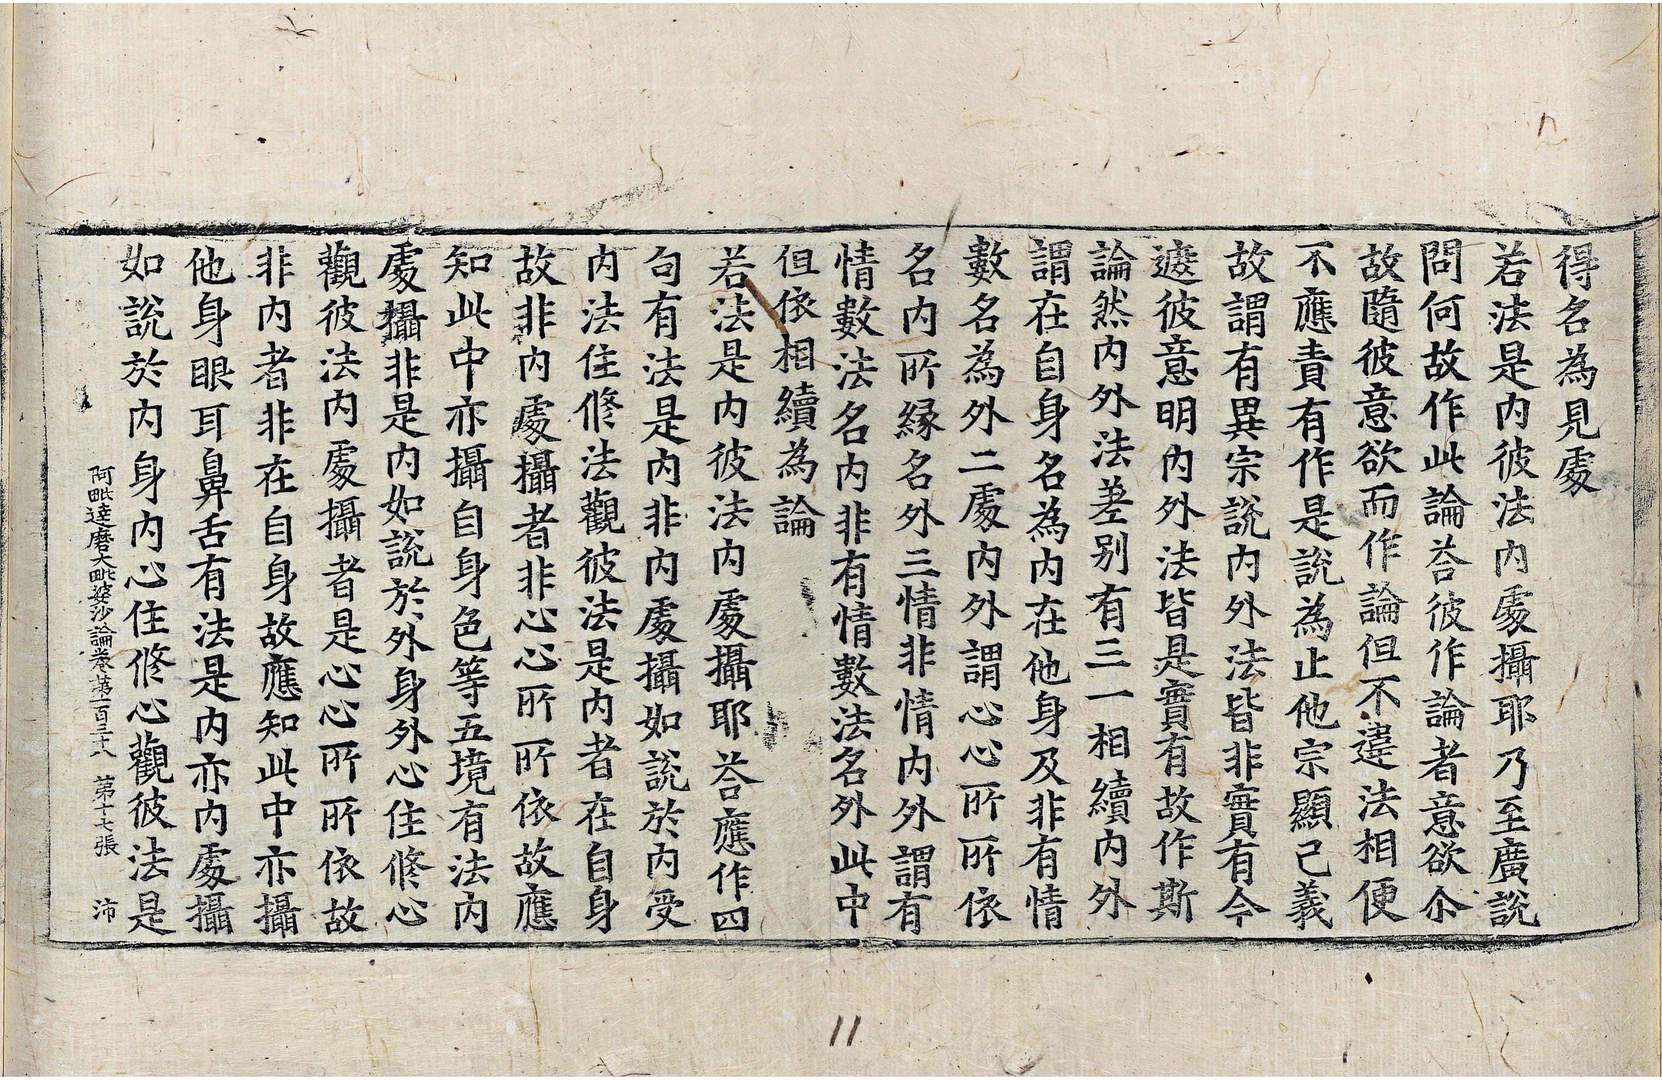 得名為見處
若法是内彼法内處攝耶乃至廣說
問何故作此論荅彼作論者意欲尒
故隨彼意欲而作論但不違法相便
不應責有作是說為止他宗顯己義
故謂有異宗說内外法皆非實有今
遮彼意明内外法皆是實有故作斯
論然内外法差别有三一相續内外
謂在自身名為内在他身及非有情
數名為外二處内外謂心心所所依
名内所縁名外三情非情内外謂有
情數法名内非有情數法名外此中
但依相續為論
若法是内彼法内處攝耶荅應作四
句有法是内非内處攝如說於内受
内法住修法觀彼法是内者在自身
故非内處攝者非心心所所依故應
知此中亦攝自身色等五境有法内
處攝非是内如說於外身外心住修心
觀彼法内處攝者是心心所所依故
非内者非在自身故應知此中亦攝
他身眼耳鼻舌有法是内亦内處攝
如說於内身内心住修心觀彼法是
阿毗達磨大毗婆沙論卷第一百三十八 第十七張 沛
11